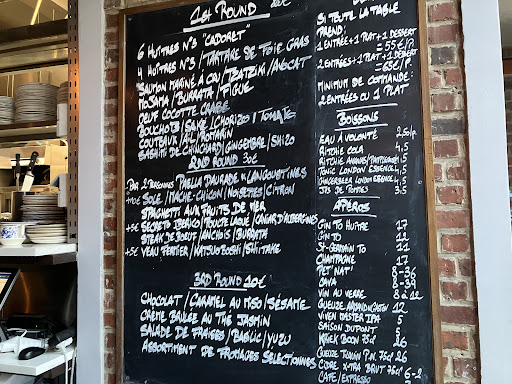 1st Round 20€
6 Huîtres n°3 "Cadoret"
4 Huîtres n°3 / Tartare de Foie Gras
Saumon mariné à cru / Tzatziki / Avocat
Mojama / Burrata / Figue
Oeuf Cocotte Crabe
Bouchots / Saké / Chorizo / Tomate
Couteaux / Ail / Romarin
Sashimi de Chinchard / Gingembre / Shizo
2nd Round 30€
Bar 2 personnes Paella Daurade & Langoustines
+10€ Sole / Mache-Chicon / Noisettes / Citron
Spaghetti aux fruits de mer
+5€ Secreto Iberico / Poulpe laqué / Caviar d'aubergines
Steak de Boeuf / Anchois / Burrata
+5€ Veau Fermier / Katsuoboshi / Shiitake
3rd Round 10€
Chocolat / Caramel au Miso / Sésame
Crème Brulée au Thé Jasmin
Salade de Fraises / Basilic / Yuzu
Assortiment de Fromages Selectionnés
Si toute la table
prend:
1 entrée + 1 plat + 1 dessert
= 55€/p.
2 entrées + 1 plat + 1 dessert
= 65€/p.
Minimum de commande:
2 entrées ou 1 plat
Boissons
Eau à volonté 2,5€/p.
Ritchie Cola 4,5
Ritchie 4,5
Tonic London Essence 4,5
Gingerbeer London Essence 4,5
Jus de Pommes 3,5
Apéros
Gin To Huitre 17
Gin To 11
St-Germain To 11
Champagne 17
Pet' Nat' 8-36
Cava 8-39
Vin au verre 8 à 12
Gueuze 12
5
Saison Dupont 5
Kriek Boon 75cl 26
Gueuze Tilquin 75cl 26
Cidre Xtra Brut 75cl 26
Café / Expresso